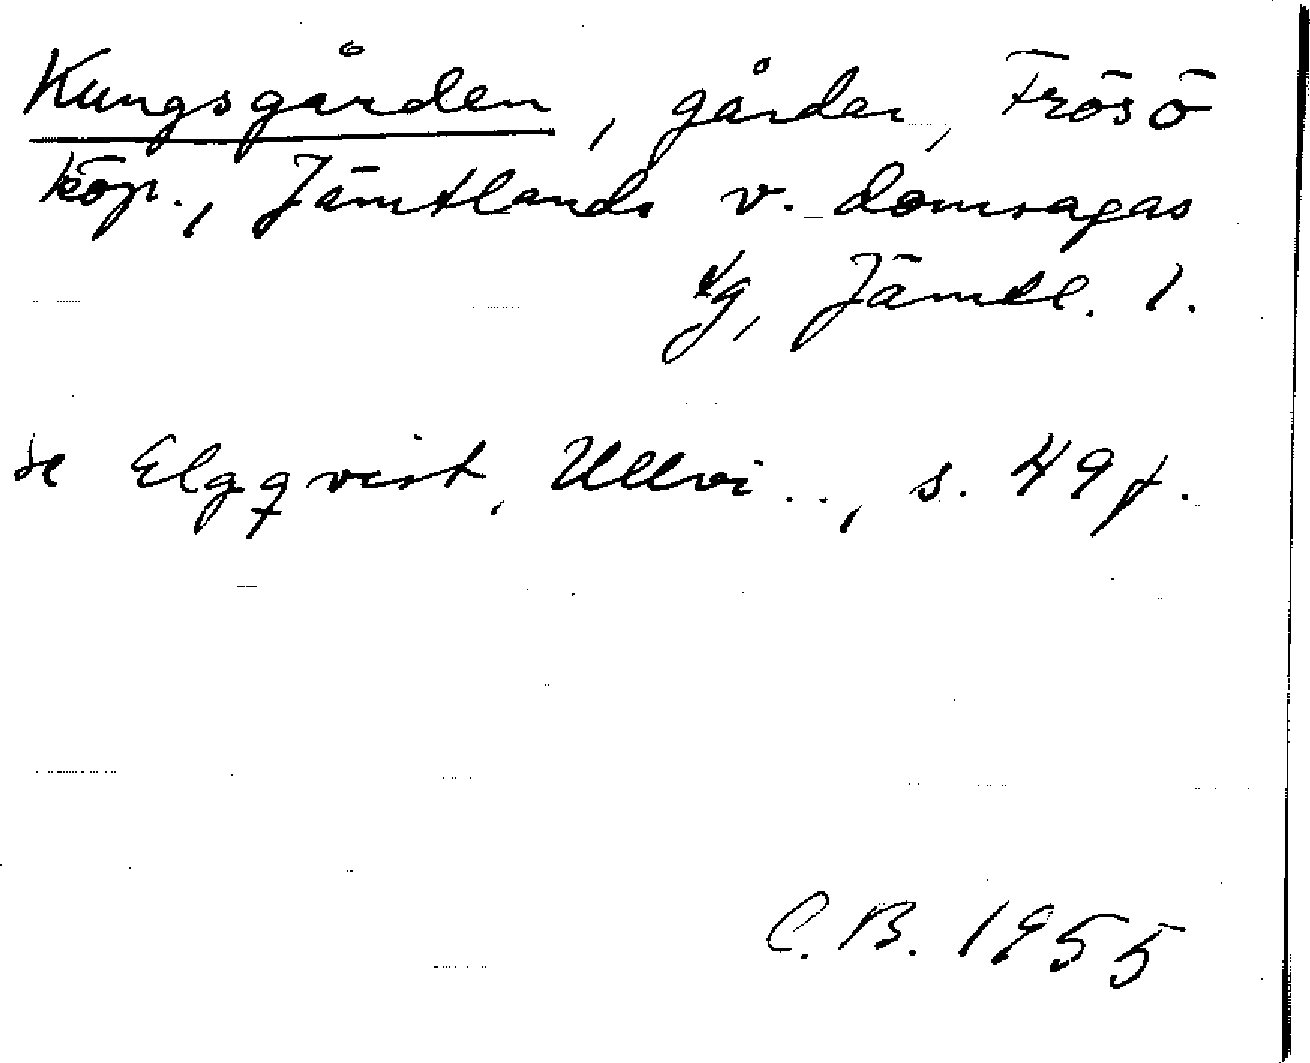 Kungsgården, gårdar, Frösö
köp., Jämtlands v. domsagas
tg, Jämtl. l.
se Elgqvist, Ullvi.., s. 49 f.
C.B. 1955